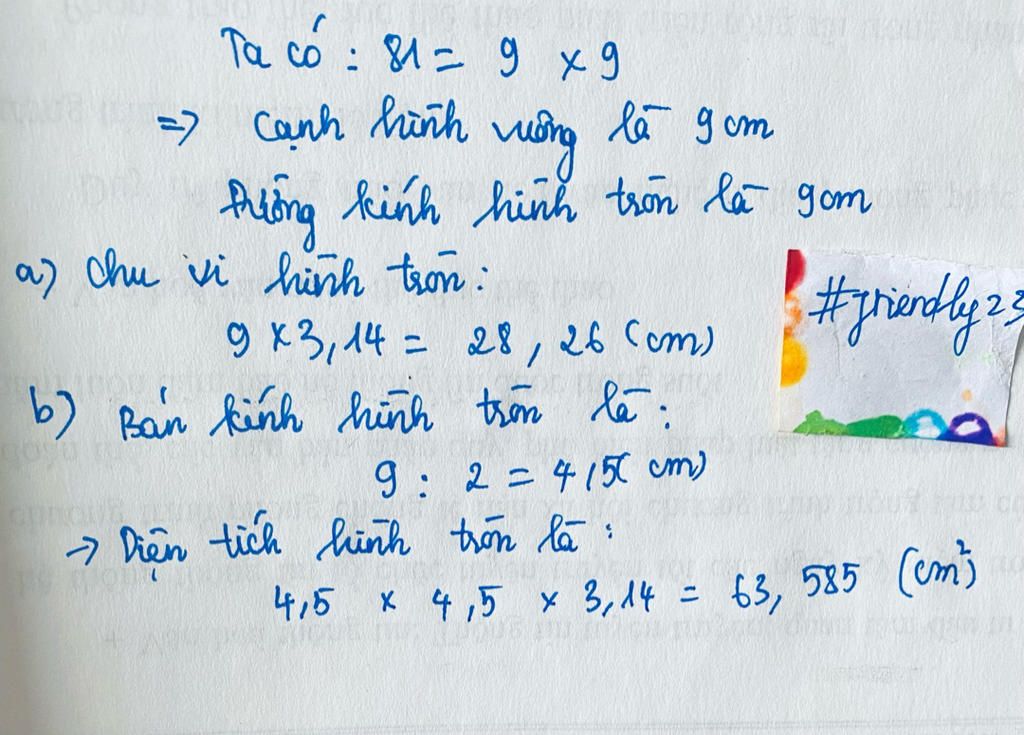 Ta có : 81 = 9 x 9
=> Cạnh hình vuông là 9 cm
Đường kính hình tròn là 9cm
a) Chu vi hình tròn:
9 x 3,14 = 28,26 (cm)
#friendly23
b) Bán kính hình tròn là:
9 : 2 = 4,5( cm)
→ Diện tích hình tròn là:
4,5 x 4,5 x 3,14 = 63,585 (cm²)